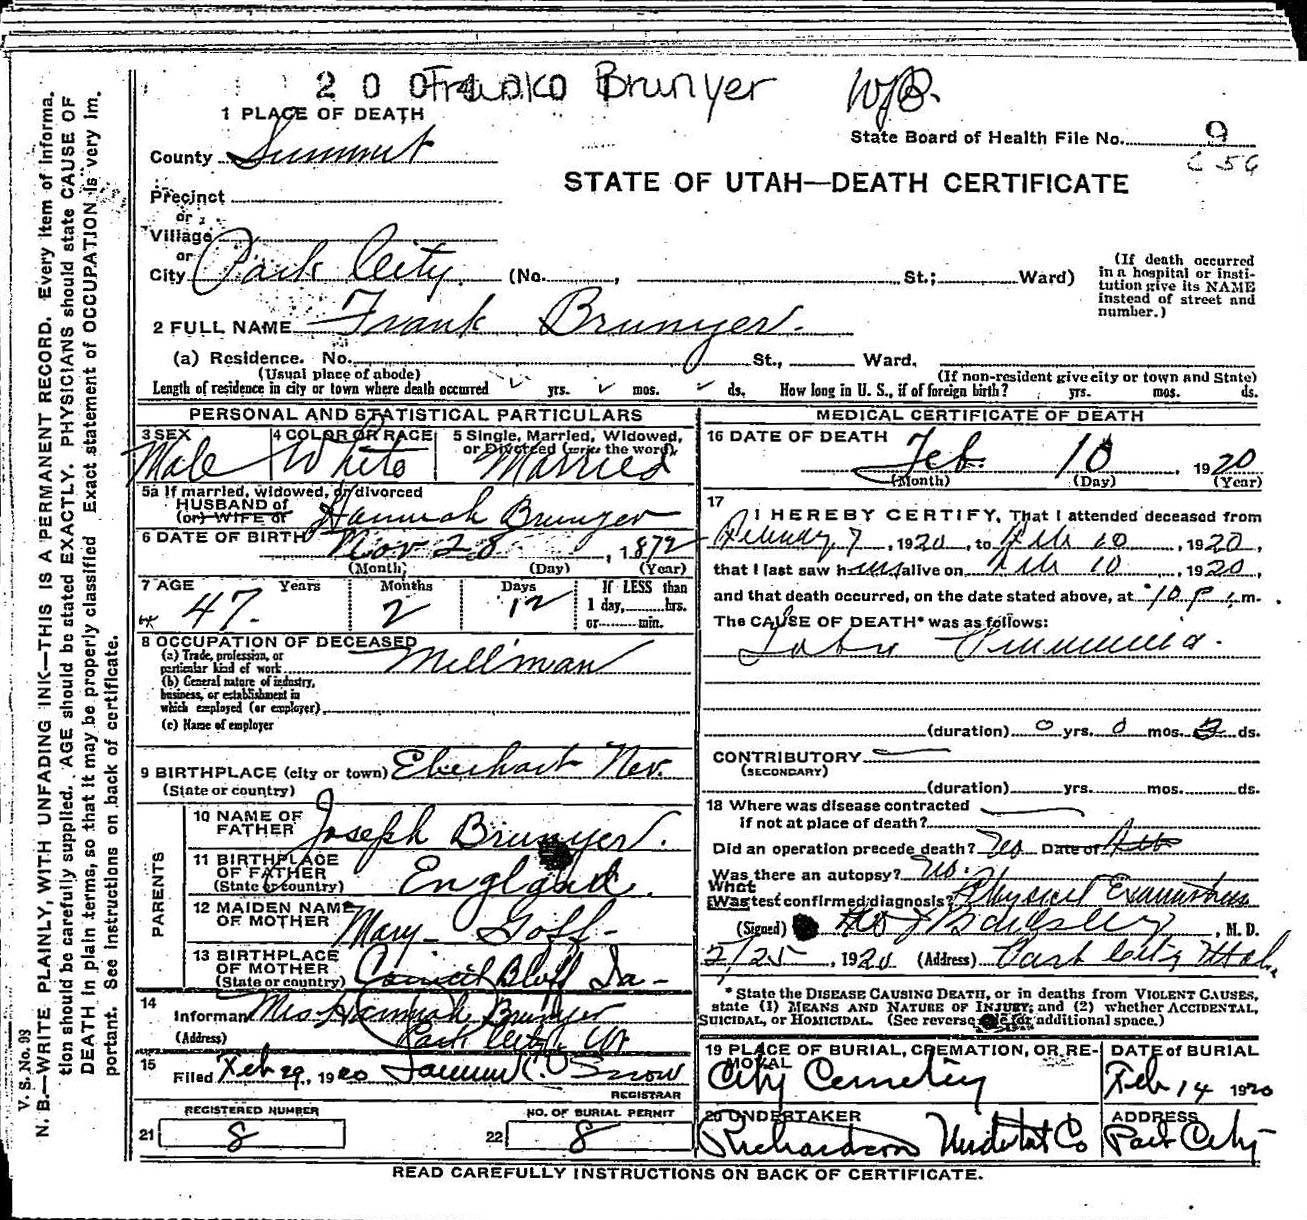 2 0 0 Franko Brunyer WJB.
1 PLACE OF DEATH
State Board of Health File No. 9
C 56
County Summit
STATE OF UTAH—DEATH CERTIFICATE
Precinct
or
Village
or
City Park City. (No. , St.; Ward)
(If death occurred in a hospital or insti-
tution give its NAME
instead of street and
number.)
2 FULL NAME Frank Brunyer.
(a) Residence. No. St., Ward.
(Usual place of abode) (If non-resident give city or town and State)
Length of residence in city or town where death occurred yrs. mos. ds. How long in U. S., if of foreign birth? yrs. mos. ds.
PERSONAL AND STATISTICAL PARTICULARS
3 SEX Male
4 COLOR OR RACE White
5 Single, Married, Widowed,
or Divorced (write the word) Married
5a If married, widowed, or divorced
HUSBAND of
(or) WIFE of Hannah Brunyer
6 DATE OF BIRTH Nov 28, 1872
(Month) (Day) (Year)
7 AGE Years Months Days If LESS than
47. 2 12 1 day, hrs.
or min.
8 OCCUPATION OF DECEASED
(a) Trade, profession, or
particular kind of work Millman
(b) General nature of industry,
business, or establishment in
which employed (or employer)
(c) Name of employer
9 BIRTHPLACE (city or town) Eberhart Nev.
(State or country)
PARENTS
10 NAME OF
FATHER Joseph Brunyer.
11 BIRTHPLACE
OF FATHER
(State or country) England.
12 MAIDEN NAME
OF MOTHER Mary Goff-
13 BIRTHPLACE
OF MOTHER
(State or country) Council Bluff Ia-
14
Informant Mrs Hannah Brunyer
(Address) Park City, Ut
15
Filed Feb 29, 1920 Snow
REGISTRAR
REGISTERED NUMBER
21 8
NO. OF BURIAL PERMIT
22 8
MEDICAL CERTIFICATE OF DEATH
16 DATE OF DEATH
Feb. 10, 1920
(Month) (Day) (Year)
17
I HEREBY CERTIFY, That I attended deceased from
February 7, 1920, to Feb 10, 1920,
that I last saw him alive on Feb 10, 1920,
and that death occurred, on the date stated above, at 10 P. m.
The CAUSE OF DEATH* was as follows:
Lobar Pneumonia.
(duration) 0 yrs. 0 mos. 3 ds.
CONTRIBUTORY
(SECONDARY)
(duration) yrs. mos. ds.
18 Where was disease contracted
if not at place of death?
Did an operation precede death? Date of
Was there an autopsy? No.
What
Was test confirmed diagnosis? Physical Examination
(Signed) , M. D.
2/25, 1920 (Address) Park City Utah
* State the DISEASE CAUSING DEATH, or in deaths from VIOLENT CAUSES,
state (1) MEANS AND NATURE OF INJURY; and (2) whether ACCIDENTAL,
SUICIDAL, or HOMICIDAL. (See reverse side for additional space.)
19 PLACE OF BURIAL, CREMATION, OR RE-
MOVAL
City Cemetery
DATE of BURIAL
Feb 14 1920
20 UNDERTAKER
Richardson Undertak Co
ADDRESS
Park City
READ CAREFULLY INSTRUCTIONS ON BACK OF CERTIFICATE.
V. S. No. 93
N. B.—WRITE PLAINLY, WITH UNFADING INK—THIS IS A PERMANENT RECORD. Every item of informa-
tion should be carefully supplied. AGE should be stated EXACTLY. PHYSICIANS should state CAUSE OF
DEATH in plain terms, so that it may be properly classified. Exact statement of OCCUPATION is very im-
portant. See instructions on back of certificate.